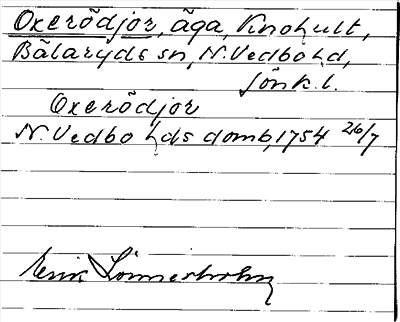 Oxerödjor, äga, Knohult,
Bälaryds sn, N. Vedbo hd,
Jönk.l.
Oxerödjor
N. Vedbo hds domb, 1754 26/7
Erik Linnerholm